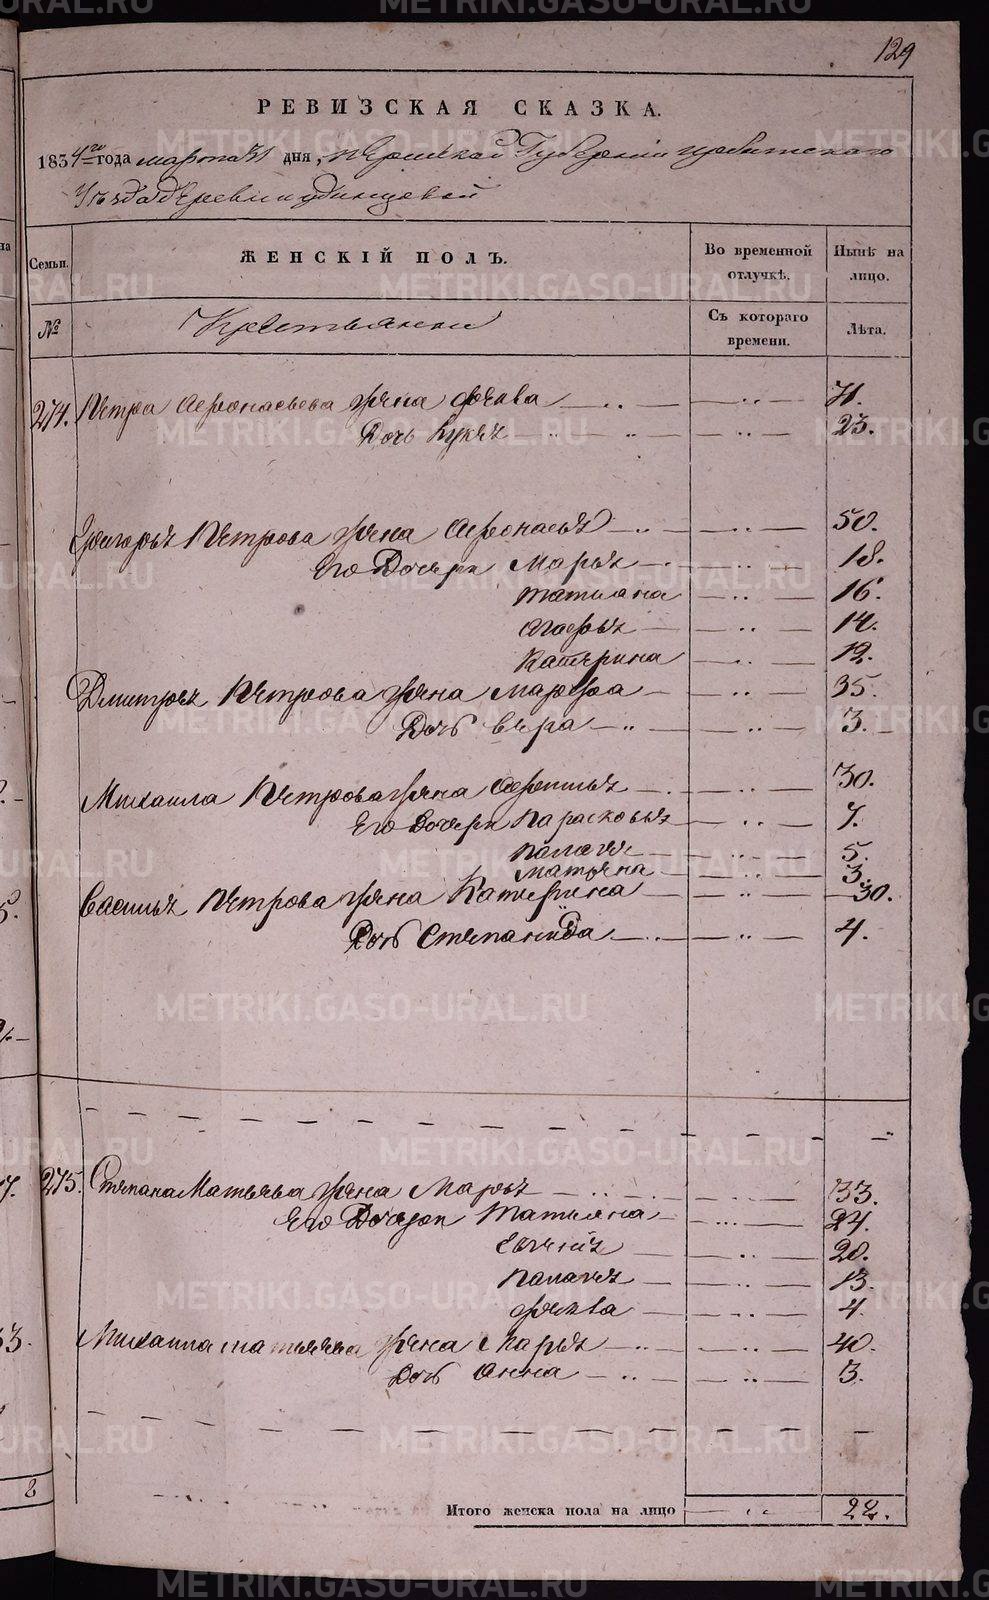 129
РЕВИЗСКАЯ СКАЗКА.
1834го года марта 31 дня, Пермской Губернии Ирбитскаго
Уѣзда деревни Одинцовой
Семьи. ЖЕНСКІЙ ПОЛЪ. Во временной отлучкѣ. Нынѣ на лицо.
№ Крестьянки Съ котораго времени. Лѣта.
274. Петра Афонасьева жена Фекла — 71.
Дочь Лукья — 23.
Григорья Петрова жена Афонасья — 50.
Его Дочери Марья — 18.
Татиана — 16.
Агафья — 14.
Катерина — 12.
Дмитрея Петрова жена Марфа — 35.
Дочь Вера — 3.
Михаила Петрова жена Афимья — 30.
Его Дочери Парасковья — 7.
Палагея — 5.
Матрена — 3.
Василья Петрова жена Катерина — 30.
Дочь Степанида — 4.
275. Степана Матвеева жена Марья — 33.
Его Дочери Татиана — 24.
Евгения — 20.
Палагея — 13.
Фекла — 4.
Михаила Матвеева жена Марья — 40.
Дочь Анна — 3.
Итого женска пола на лицо 22.
METRIKI.GASO-URAL.RU